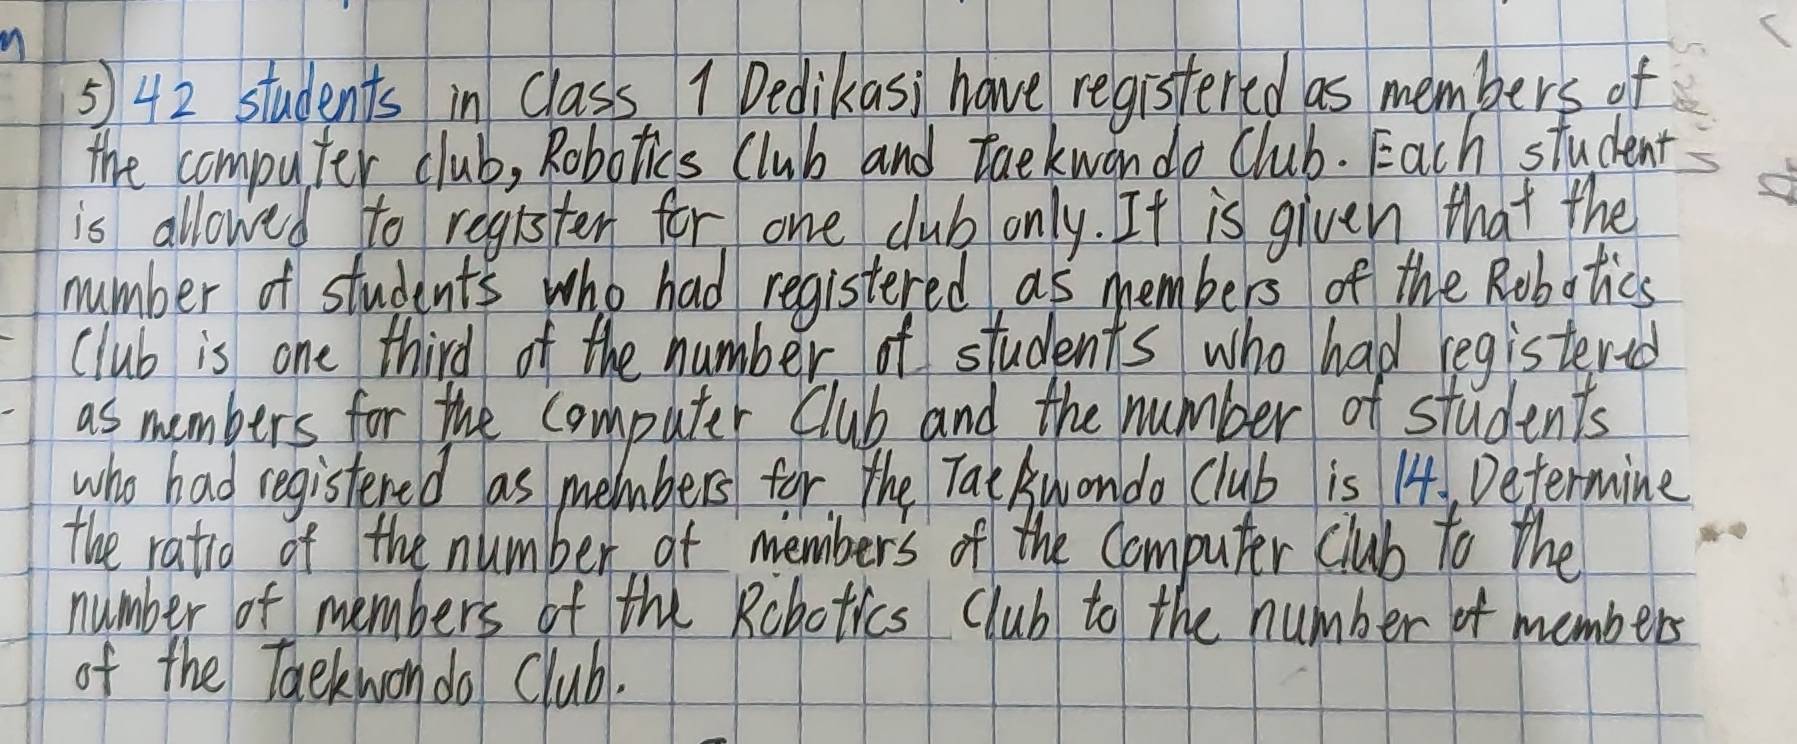 5) 42 students in Class 1 Dedikasi have registered as members of
the computer club, Robotics Club and Taekwondo Club. Each student
is allowed to register for one club only. It is given that the
number of students who had registered as members of the Robotics
Club is one third of the number of students who had registered
as members for the Computer Club and the number of students
who had registered as members for the Taekwondo Club is 14. Determine
the ratio of the number of members of the Computer Club to the
number of members of the Robotics Club to the number of members
of the Taekwondo Club.